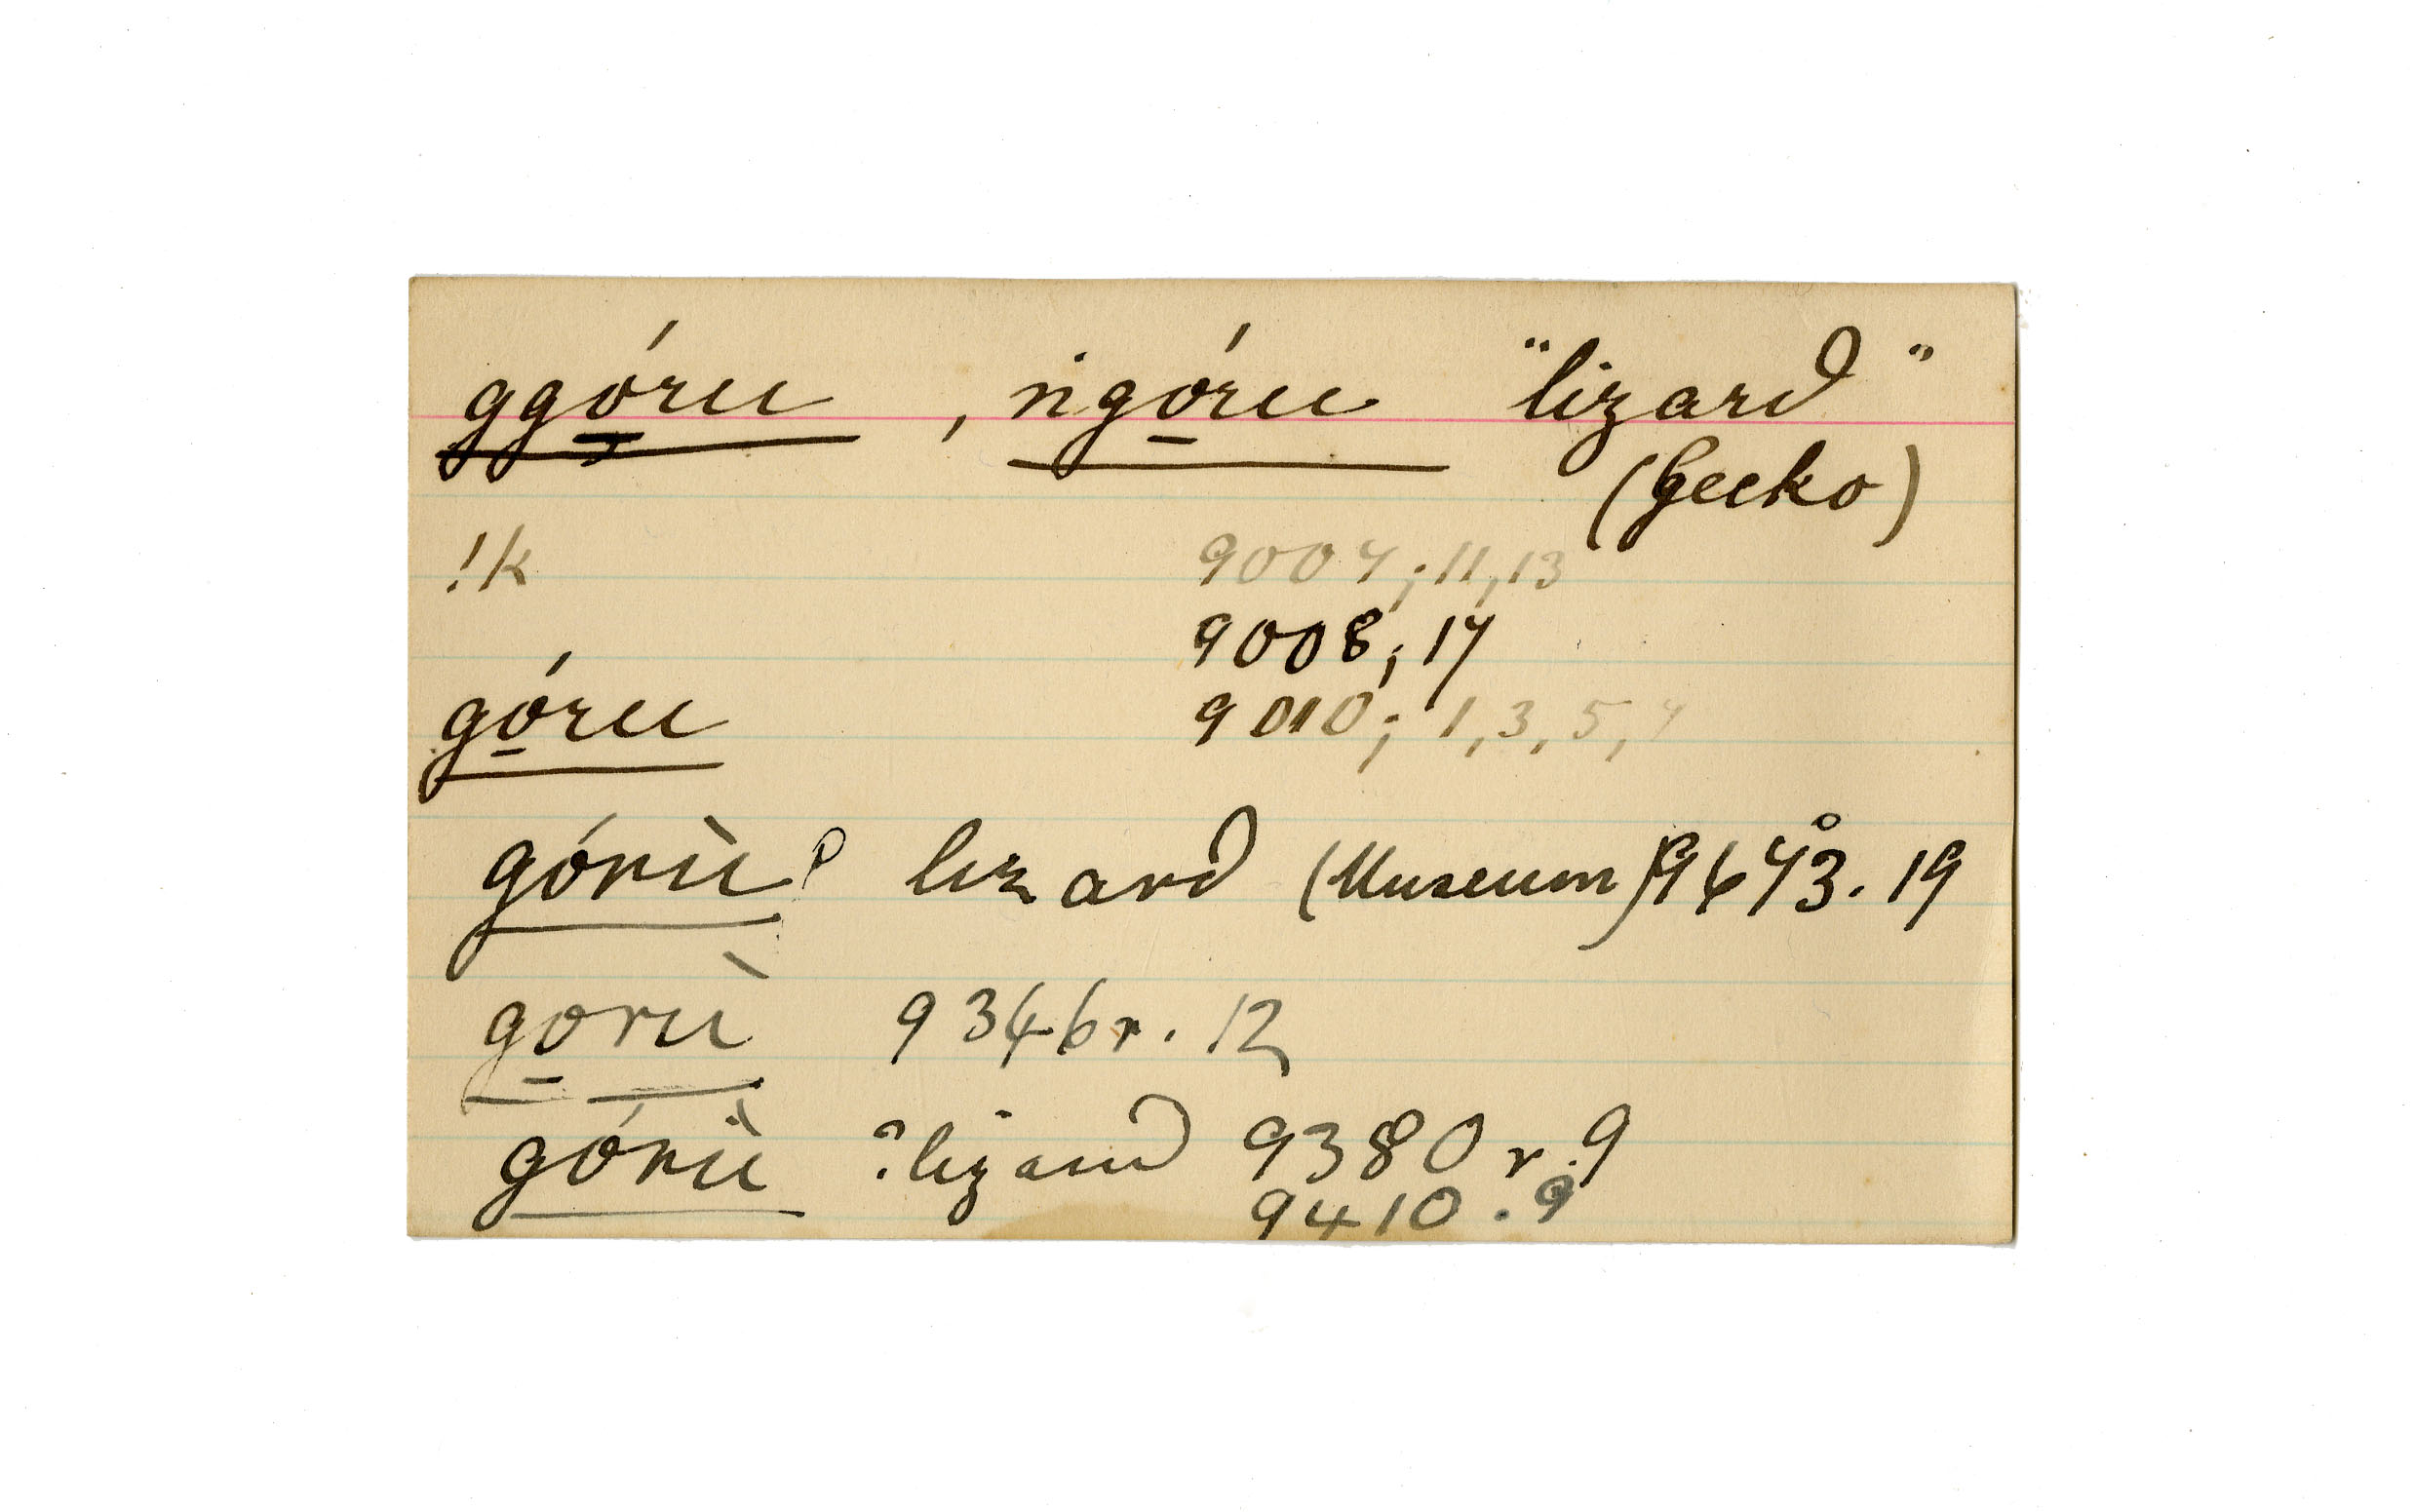 ggó̱ru , ṅgó̱ru "lizard"
(Gecko)
!k 9007; 11, 13
9008; 17
gó̱ru 9010; 1, 3, 5, 7
górù? lizard (Museum) 9673. 19
go̱rù 9346r. 12
górù ?lizard 9380 r. 9
9410 . 9